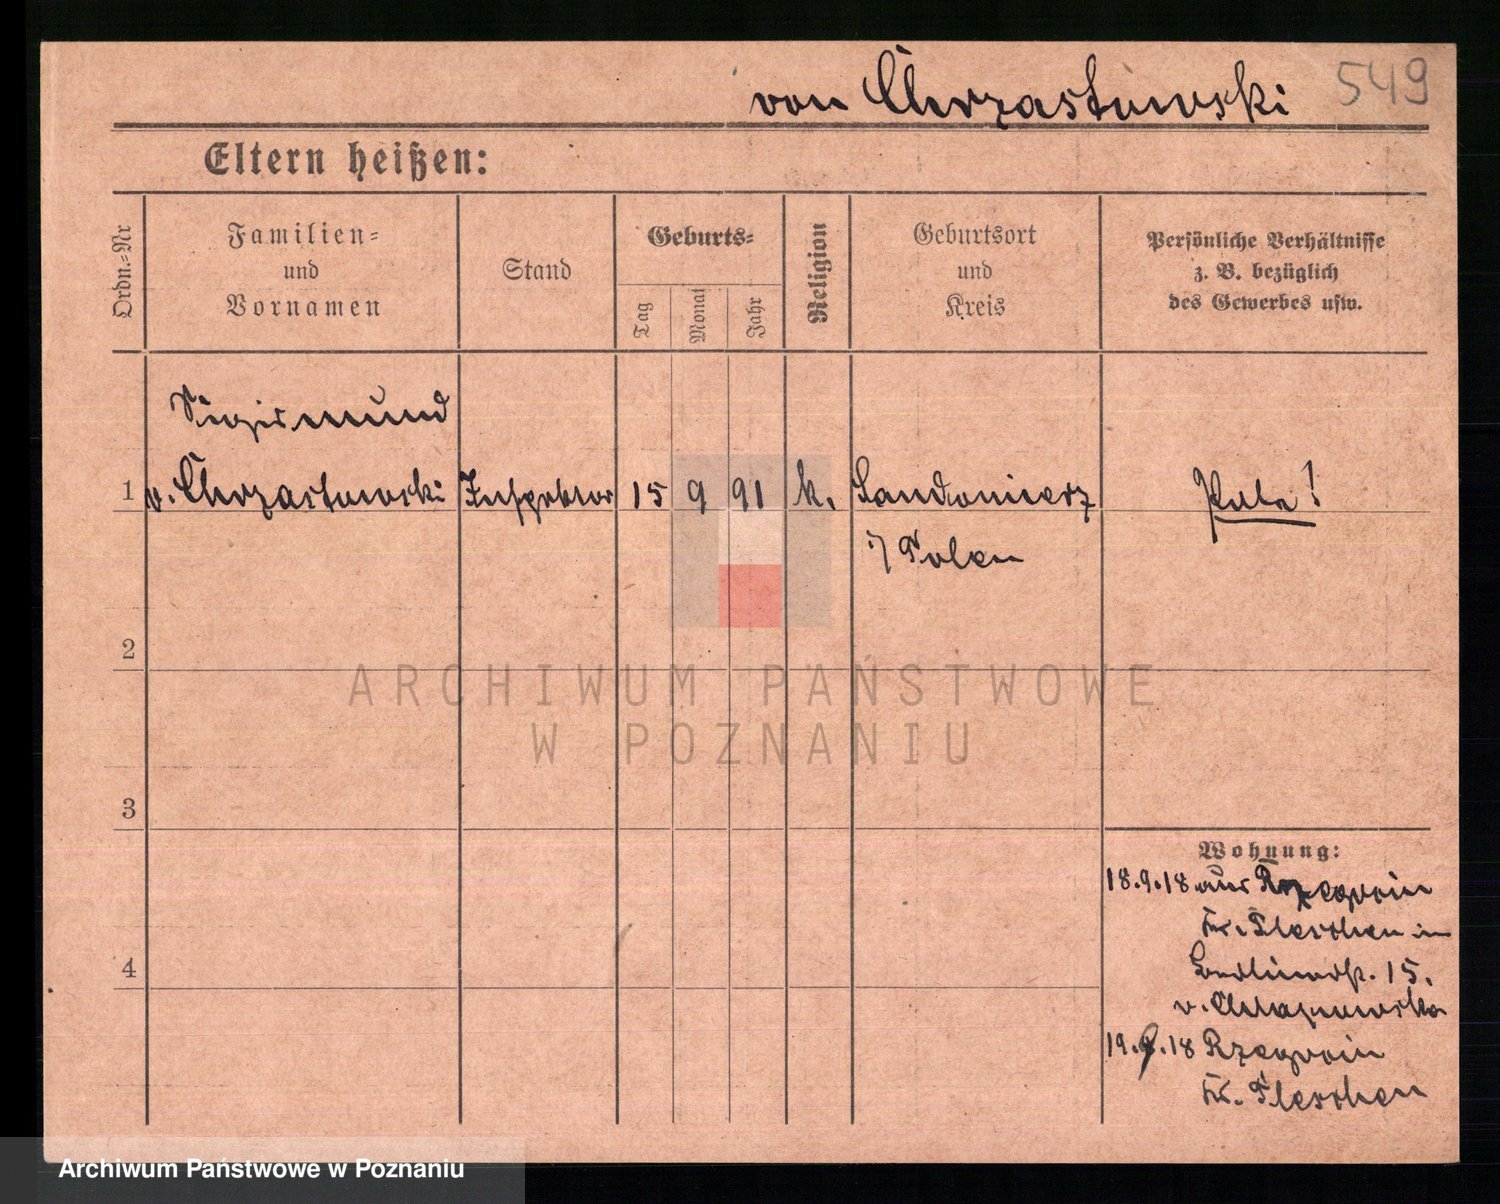 von Chrzastowski 549
Eltern heißen:
Ordn.-Nr
Familien-
und
Vornamen
Stand
Geburts-
Tag
Monat
Jahr
Religion
Geburtsort
und
Kreis
Persönliche Verhältnisse
z. B. bezüglich
des Gewerbes usw.
Sigismund
1 v. Chrzastowski Inspektor 15 9 91 k. Sandomierz
i/ Polen
Pole!
2
ARCHIWUM PAŃSTWOWE
W POZNANIU
3
Wohnung:
18.9.18 aus Rzegocin
Kr. Pleschen in
Berlinerstr. 15.
4
19.9.18 Rzegocin
Kr. Pleschen
Archiwum Państwowe w Poznaniu